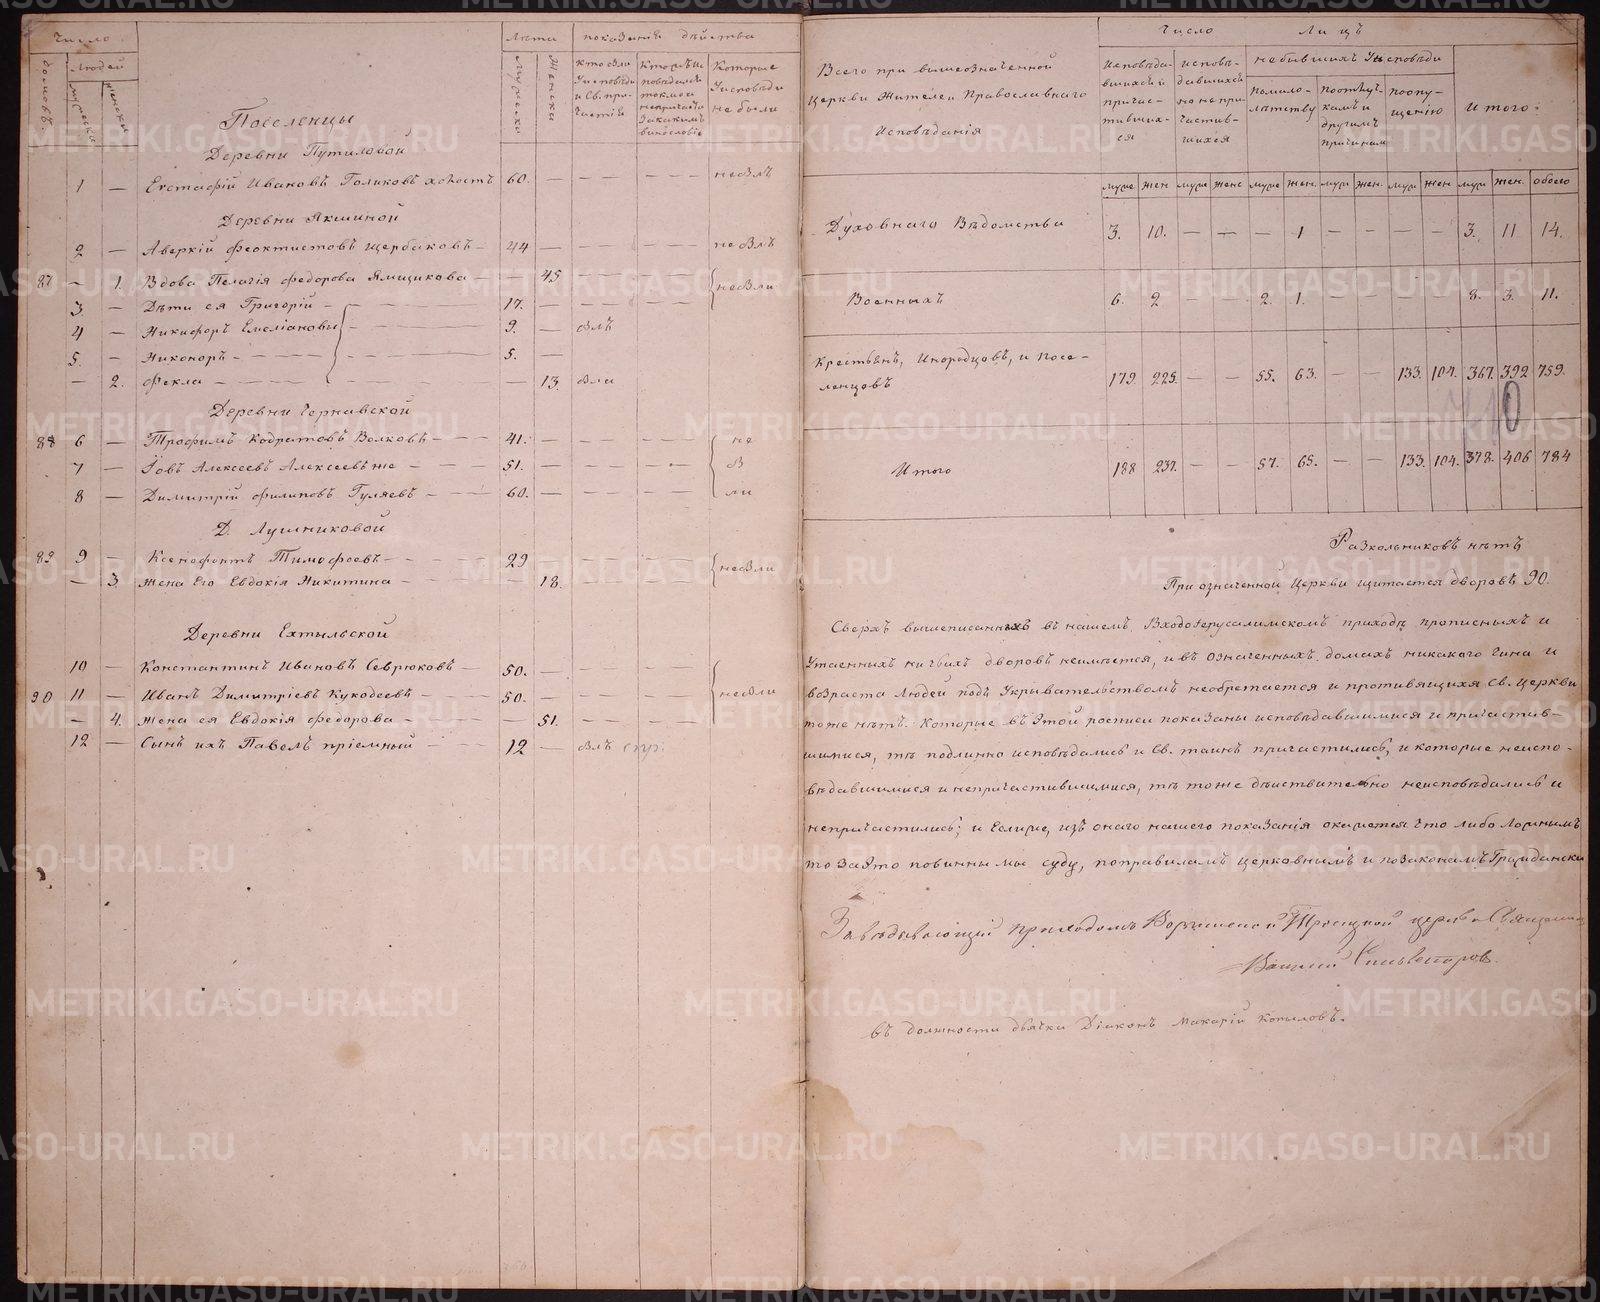 Число
Людей
домовъ.
мужеска
женска
Лѣта
Мужеска
Женска
показанія дѣйства
Кто были
У исповѣди
и Св. при-
частія
Кто ... ис
повѣдался
токмо а
непричаст.
За какимъ
винословіе
Которые
У исповѣди
не были
Поселенцы
Деревни Путиловой
1 — Евстафій Ивановъ Голиковъ холостъ 60. — небылъ
Деревни Якшиной
2 — Аверкій Феоктистовъ Щербаковъ 44 — небылъ
87 — 1. Вдова Пелагія Федорова Ямщикова — 45 небыли
3 — Дѣти ея Григорій 17.
4 — Никифоръ Емеліановы 9. — былъ
5. — Никоноръ 5. —
— 2. Фекла — 13. была
Деревни Чернавской
88 6 — Трофимъ Кодратовъ Волковъ 41. — не
7 — Іовъ Алексеевъ Алексеевъ же 51. — бы
8 — Димитрій Филиповъ Гуляевъ 60. — ли
Д. Лушниковой
89 9 — Ксенофонтъ Тимофеевъ 29 небыли
— 3. Жена Его Евдокія Никитина — 18.
Деревни Ехтыльской
10 — Константинъ Ивановъ Севрюковъ 50. —
90 11 — Иванъ Димитріевъ Куходеевъ 50. небыли
— 4. Жена ея Евдокія Федорова — 51.
12 — Сынъ ихъ Павелъ пріемный 12 — былъ
Всего при вышеозначенной
Церкви Жителей Православнаго
Исповѣданія
Число Лицъ
Исповѣда-
вшихся и
причас-
тивших-
ся
исповѣ-
давшихся
но не при-
частив-
шихся
небывшихъ У исповѣди
помало-
лѣтству
поотлуч-
камъ и
другимъ
причинам
поопу-
щенію
Итого:
муже жен муже женс муже жен. муж жен. муж жен муж жен. обоего
Духовнаго Вѣдомства 3. 10. — — — 1 — — — — 3. 11 14.
Военныхъ 6. 2 — — 2. 1. — — — — 8. 3. 11.
Крестьянъ, Инородцовъ, и Посе-
ленцовъ 179. 225. — — 55. 63. — — 133. 104. 367. 392 759.
10
Итого 188 237. — — 57. 65. — — 133. 104. 378. 406 784
Разкольниковъ нѣтъ
При означенной Церкви щитается дворовъ 90.
Сверхъ вышеписанныхъ въ нашемъ Входоіерусалимскомъ приходѣ прописныхъ и
Утаенныхъ ничьихъ дворовъ неимѣется, и въ означенныхъ домахъ никакого чина и
возраста людей подъ Укрывательствомъ необретается и противящихся Св. Церкви
тоже нѣтъ. Которые въ Этой росписи показаны исповѣдавшимися и причастив-
шимися, тѣ подлинно исповѣдались и Св. таинъ причастились, и которые неиспо-
вѣдавшимися и непричастившимися, тѣ тоже дѣиствительно неисповѣдались и
непричастились; и Еслиже, изъ онаго нашего показанія окажется что либо ложнымъ
то за Это повинны мы суду, поправиламъ церковнымъ и позаконамъ Граждански
Завѣдывающій приходомъ Троицкой церкви Священник
Василій Сильвестровъ.
въ должности дьячка Діаконъ Макарій Копыловъ.
METRIKI.GASO-URAL.RU